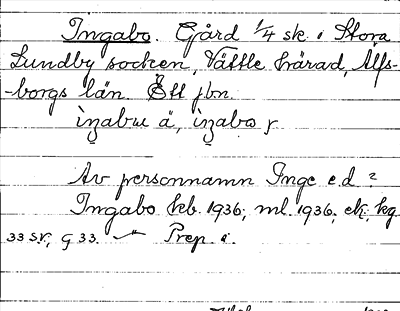 Ingabo. Gård 1/4 sk. i Stora
Lundby socken, Vättle härad, Älfs-
-borgs län. Ett jbn.
iŋabu ä, iŋabo r
Av personnamn Inge e.d.?
Ingabo kb. 1936, ml. 1936, ek, kg
33 SV, G 33. Prep i.